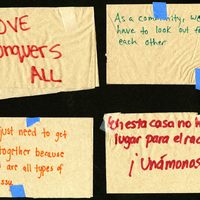 LOVE
Conquers
ALL
As a community, we
have to look out for
each other
just need to get
together because
are all types of
En esta casa no h
lugar para el rac
¡Unámonos